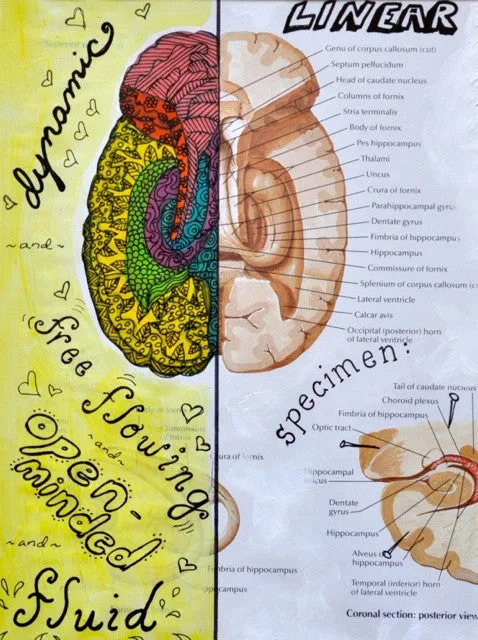 dynamic
~and~
free flowing
~and~
open-
minded
~and~
fluid
LINEAR
Genu of corpus callosum (cut)
Septum pellucidum
Head of caudate nucleus
Columns of fornix
Stria terminalis
Body of fornix
Pes hippocampus
Thalami
Uncus
Crura of fornix
Parahippocampal gyrus
Dentate gyrus
Fimbria of hippocampus
Hippocampus
Commissure of fornix
Splenium of corpus callosum
Lateral ventricle
Calcar avis
Occipital (posterior) horn
of lateral ventricle
specimen:
Tail of caudate nucleus
Choroid plexus
Fimbria of hippocampus
Optic tract
Hippocampal
sulcus
Dentate
gyrus
Hippocampus
Alveus of
hippocampus
Temporal (inferior) horn
of lateral ventricle
Coronal section: posterior view
Superior
Body of fornix
Commissure
of fornix
Crura of fornix
Fimbria of hippocampus
Hippocampus